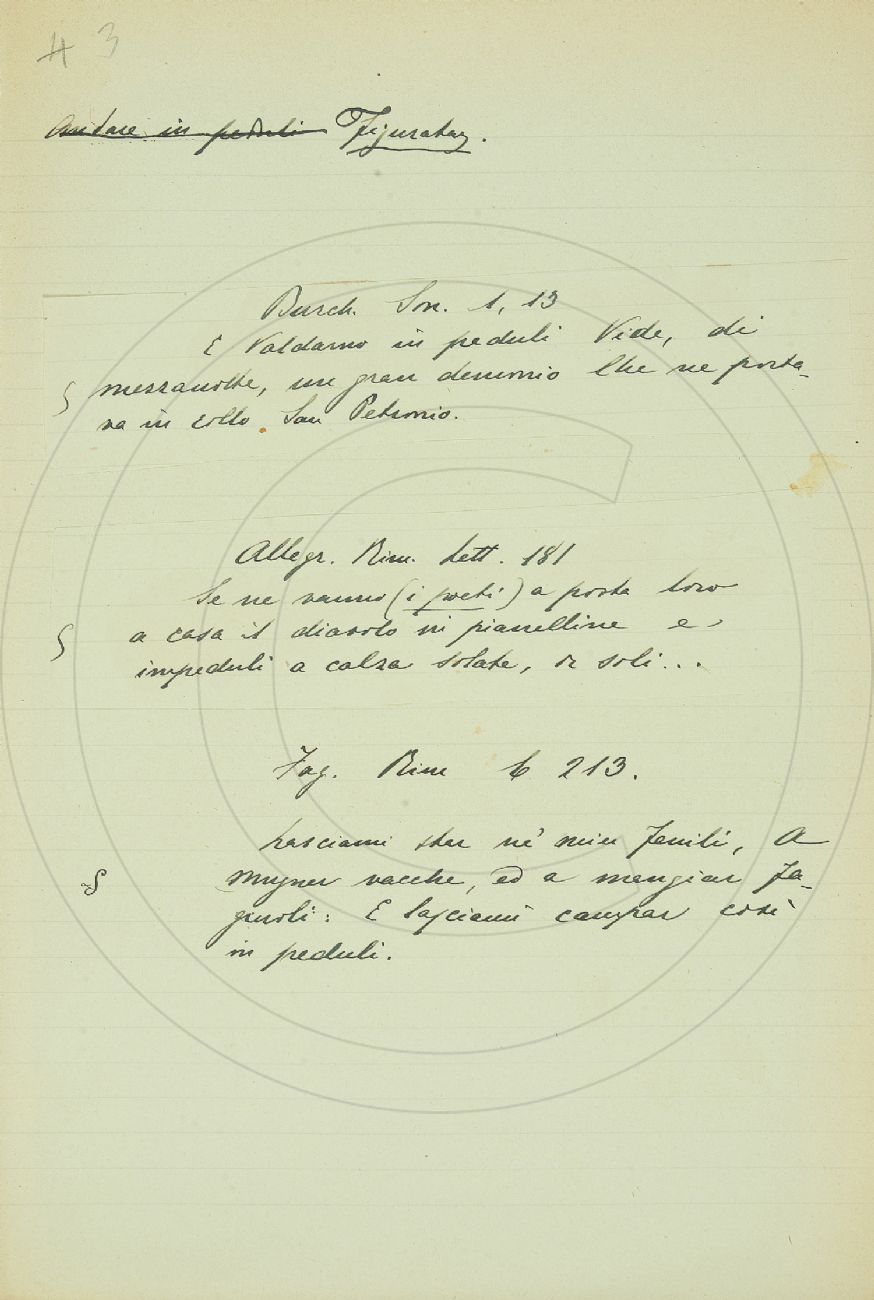 # 3
Andare in peduli Figuratam.
Burch. Son. 1, 13
E Valdarno in peduli Vide, di
mezzanotte, un gran demonio Che ne porta-
va in collo San Petronio.
Allegr. Rim. Lett. 181
Se ne vanno (i poeti) a posta loro
a casa il diavolo in pianelline e,
impeduli a calza solate, o soli...
Fag. Rim 6 213.
Lasciami star ne' miei Fenili, A
mugner vacche, ed a mangiar fa-
giuoli: E lasciami campar così
in peduli.